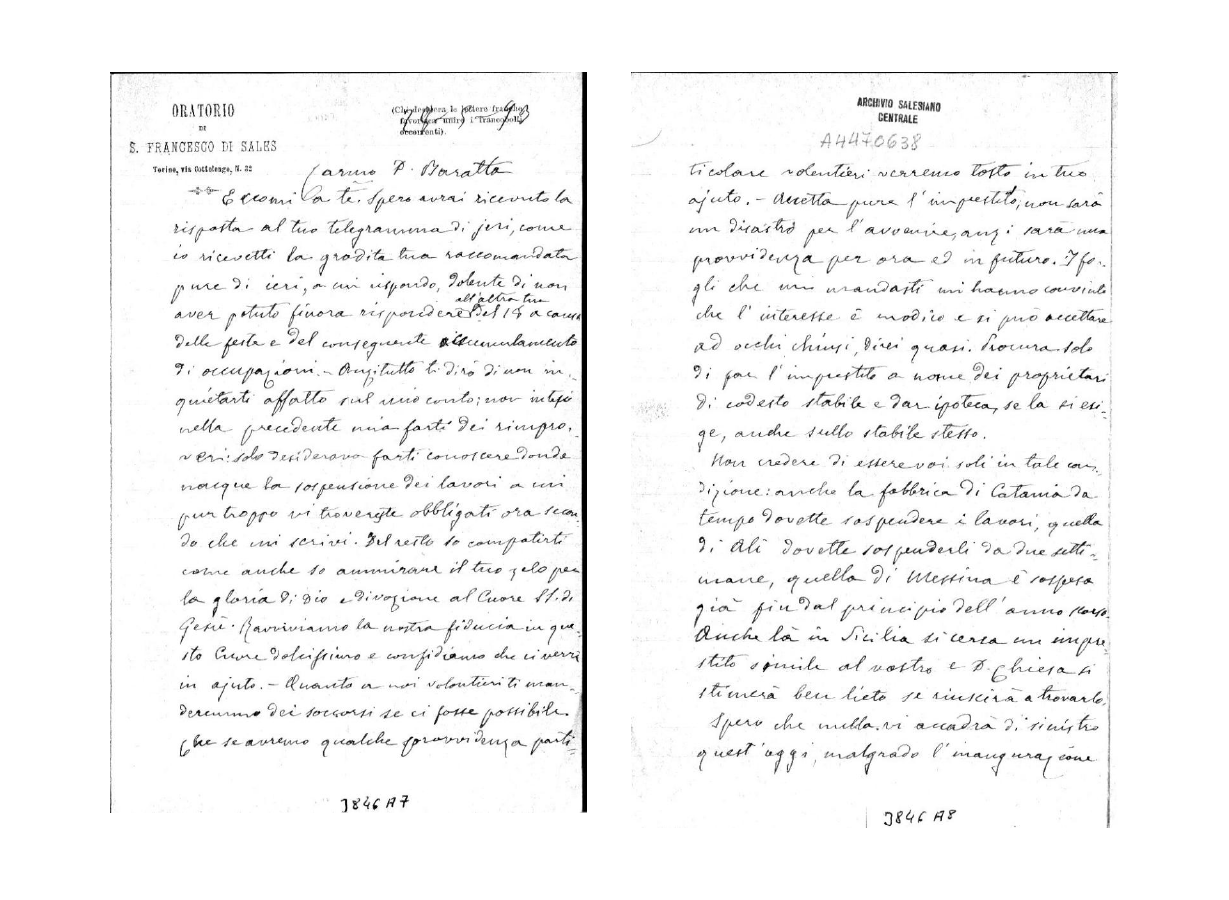 ORATORIO
DI
S. FRANCESCO DI SALES
Torino, via Cottolengo, N. 32
(Chi desidera le lettere franche
favorisca unire i francobolli
occorrenti).
Carmo D. Baratta
Eccomi a te. Spero avrai ricevuto la
risposta al tuo telegramma di jeri, come
io ricevetti la gradita tua raccomandata
pure di ieri, a cui rispondo, dolente di non
all'altra tua
aver potuto finora rispondere del 18 a causa
delle feste e del conseguente accumulamento
di occupazioni. - Anzitutto ti dirò di non in-
quietarti affatto sul mio conto; non intesi
nella precedente mia farti dei rimpro-
veri: solo desiderava farti conoscere donde
nacque la sospensione dei lavori a cui
pur troppo vi troverete obbligati ora secon-
do che mi scrivi. Del resto so compatirti
come anche so ammirare il tuo zelo per
la gloria di Dio e divozione al Cuore SS. di
Gesù. Ravviviamo la nostra fiducia in que-
sto Cuore dolcissimo e confidiamo che ci verrà
in ajuto. - Quanto a noi volontieri ti man-
deremmo dei soccorsi se ci fosse possibile.
Che se avremo qualche provvidenza parti-
3846 A7
ARCHIVIO SALESIANO
CENTRALE
A4470638
ticolare volentieri verremo tosto in tuo
ajuto. - Accetta pure l'imprestito, non sarà
un disastro per l'avvenire, anzi sarà una
provvidenza per ora ed in futuro. I fo-
gli che mi mandasti mi hanno convinto
che l'interesse è modico e si può accettare
ad occhi chiusi, direi quasi. Procura solo
di far l'imprestito a nome dei proprietari
di codesto stabile e dar ipoteca, se la si esi-
ge, anche sullo stabile stesso.
Non credere di essere voi soli in tale con-
dizione: anche la fabbrica di Catania da
tempo dovette sospendere i lavori, quella
di Alì dovette sospenderli da due setti-
mane, quella di Messina è sospesa
già fin dal principio dell'anno scorso.
Anche là in Sicilia si cerca un impre-
stito simile al vostro e D. Chiesa si
stimerà ben lieto se riuscirà a trovarlo.
Spero che nulla vi accadrà di sinistro
quest'oggi, malgrado l'inaugurazione
3846 A8